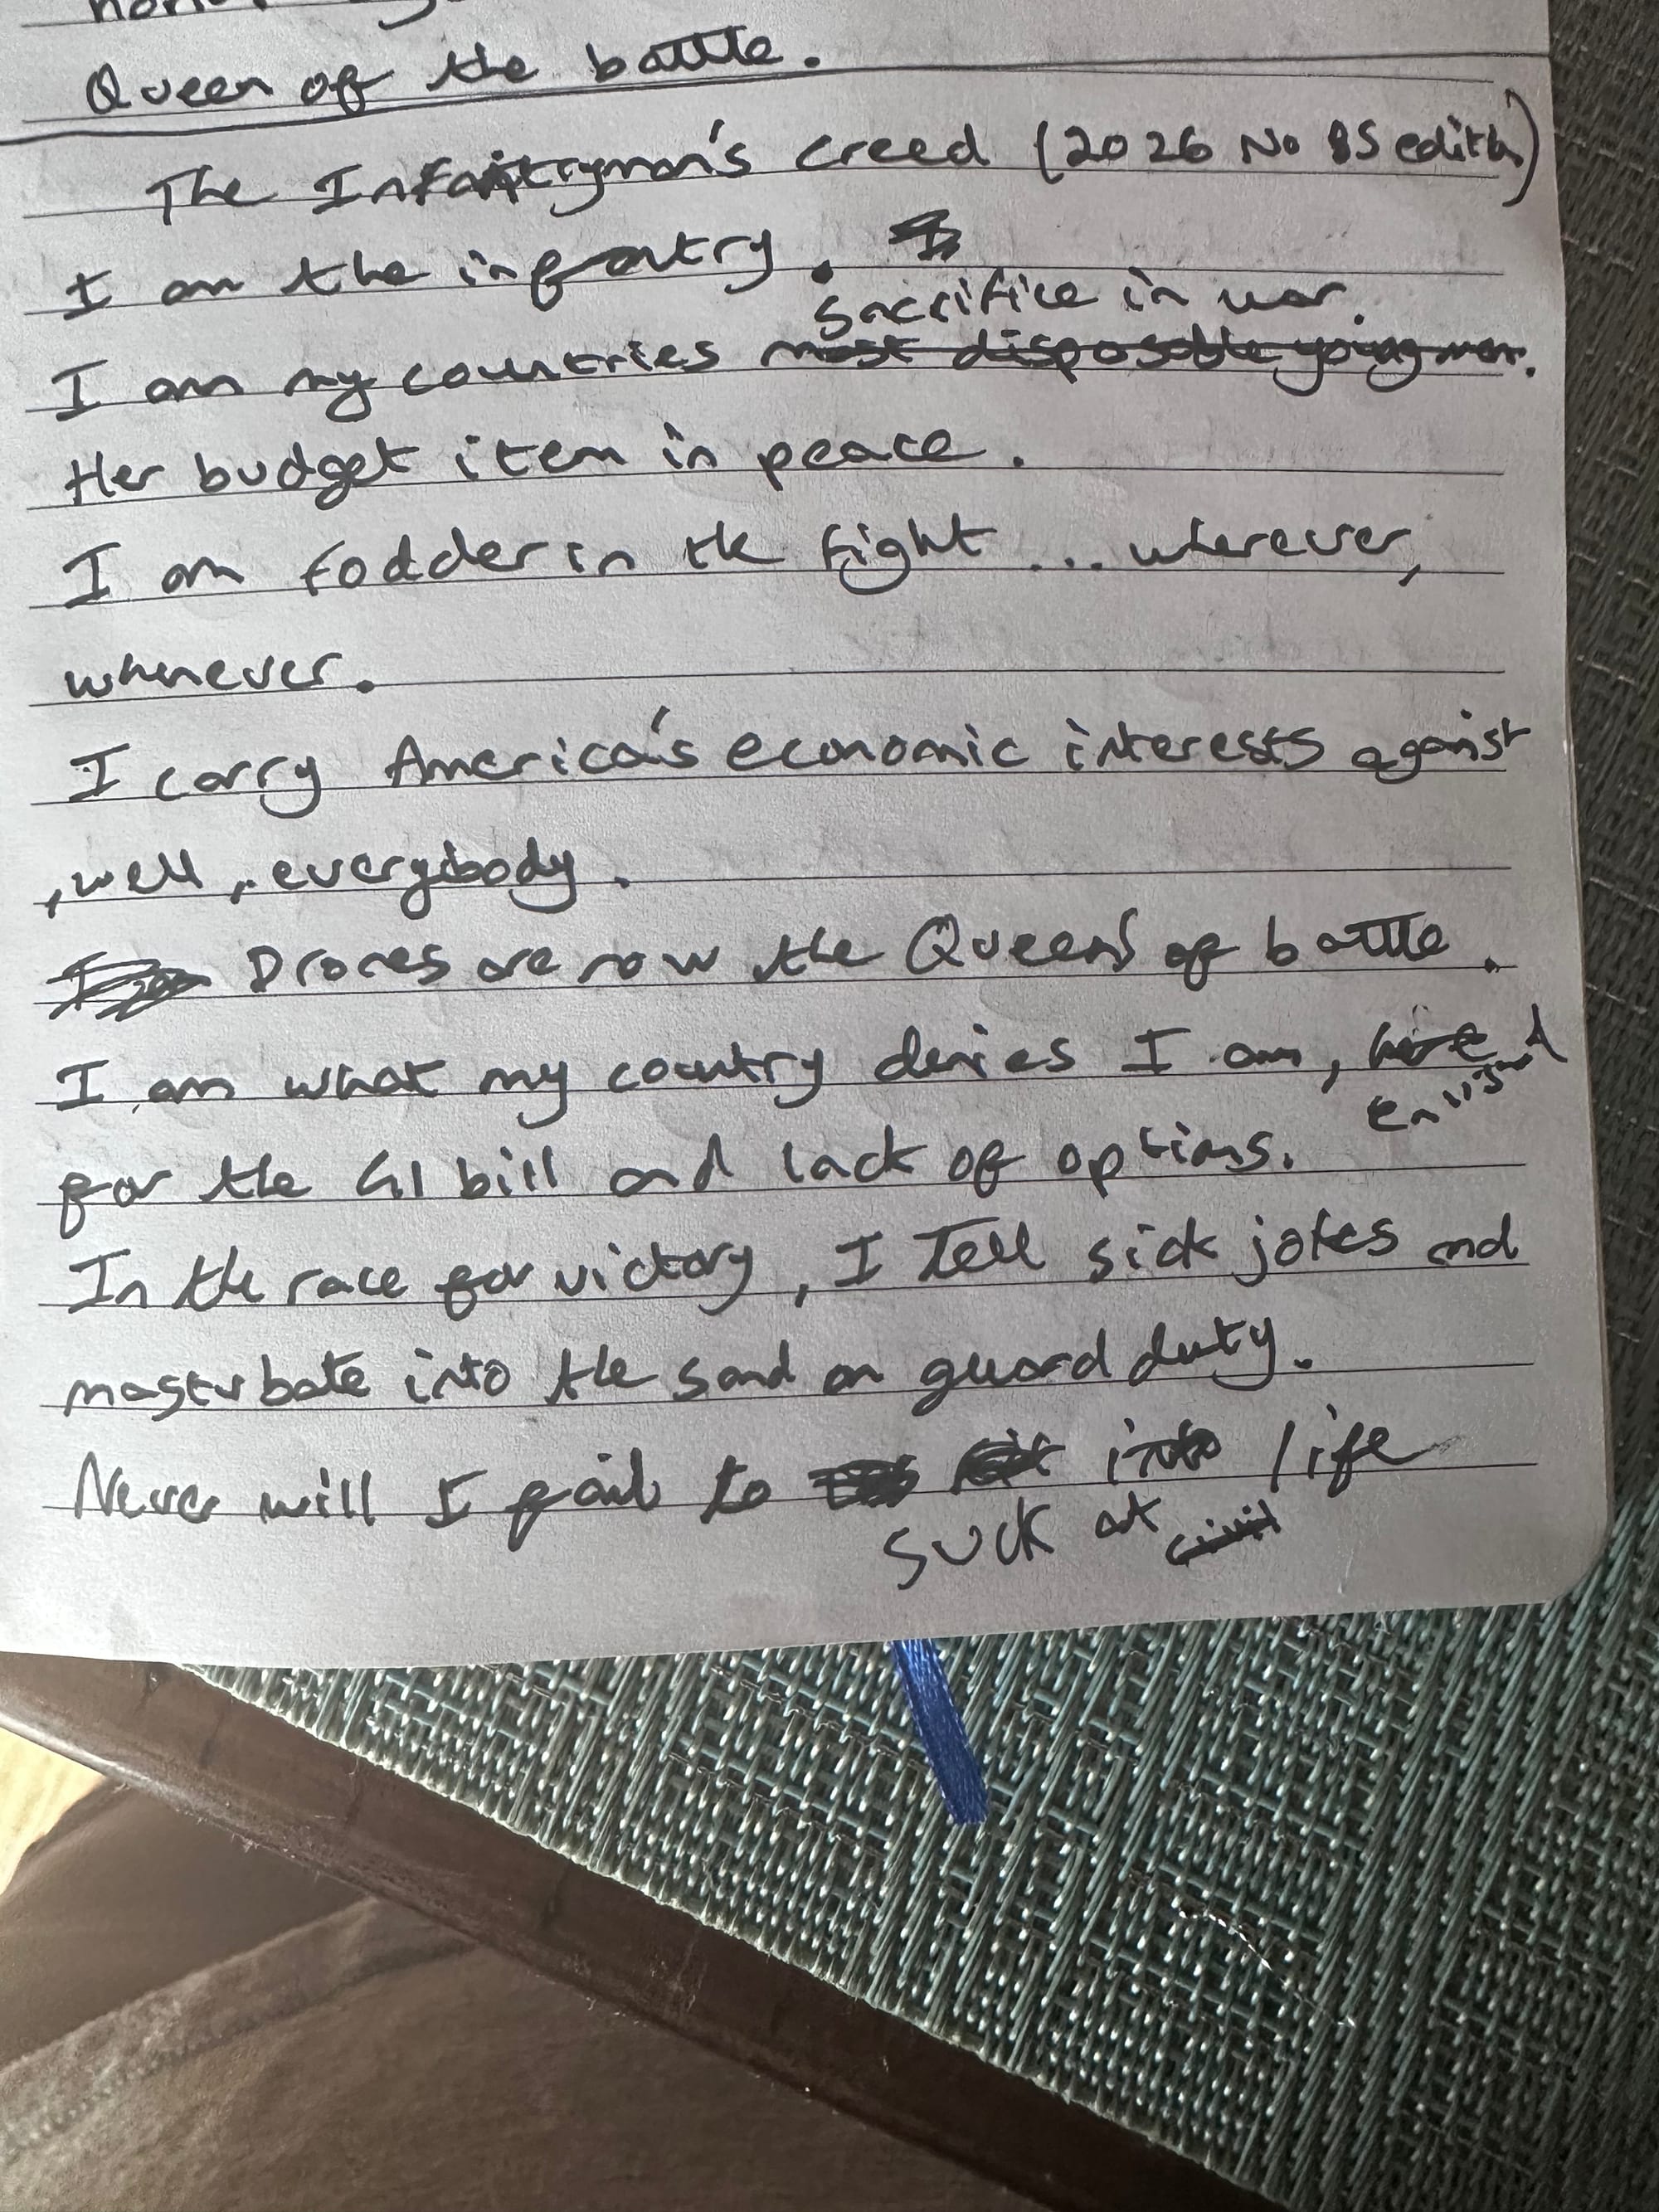 Queen of the battle.
The Infantryman's Creed (2026 No BS edition)
I am the infantry.
sacrifice in war.
I am my countries most disposable young men.
Her budget item in peace.
I am fodder in the fight ... wherever,
whenever.
I carry America's economic interests against
, well, everybody.
Drones are now the Queens of battle.
I am what my country denies I am, hire
enlisted
for the GI bill and lack of options.
In the race for victory, I Tell sick jokes and
masturbate into the sand on guard duty.
Never will I fail to into life
suck at civil